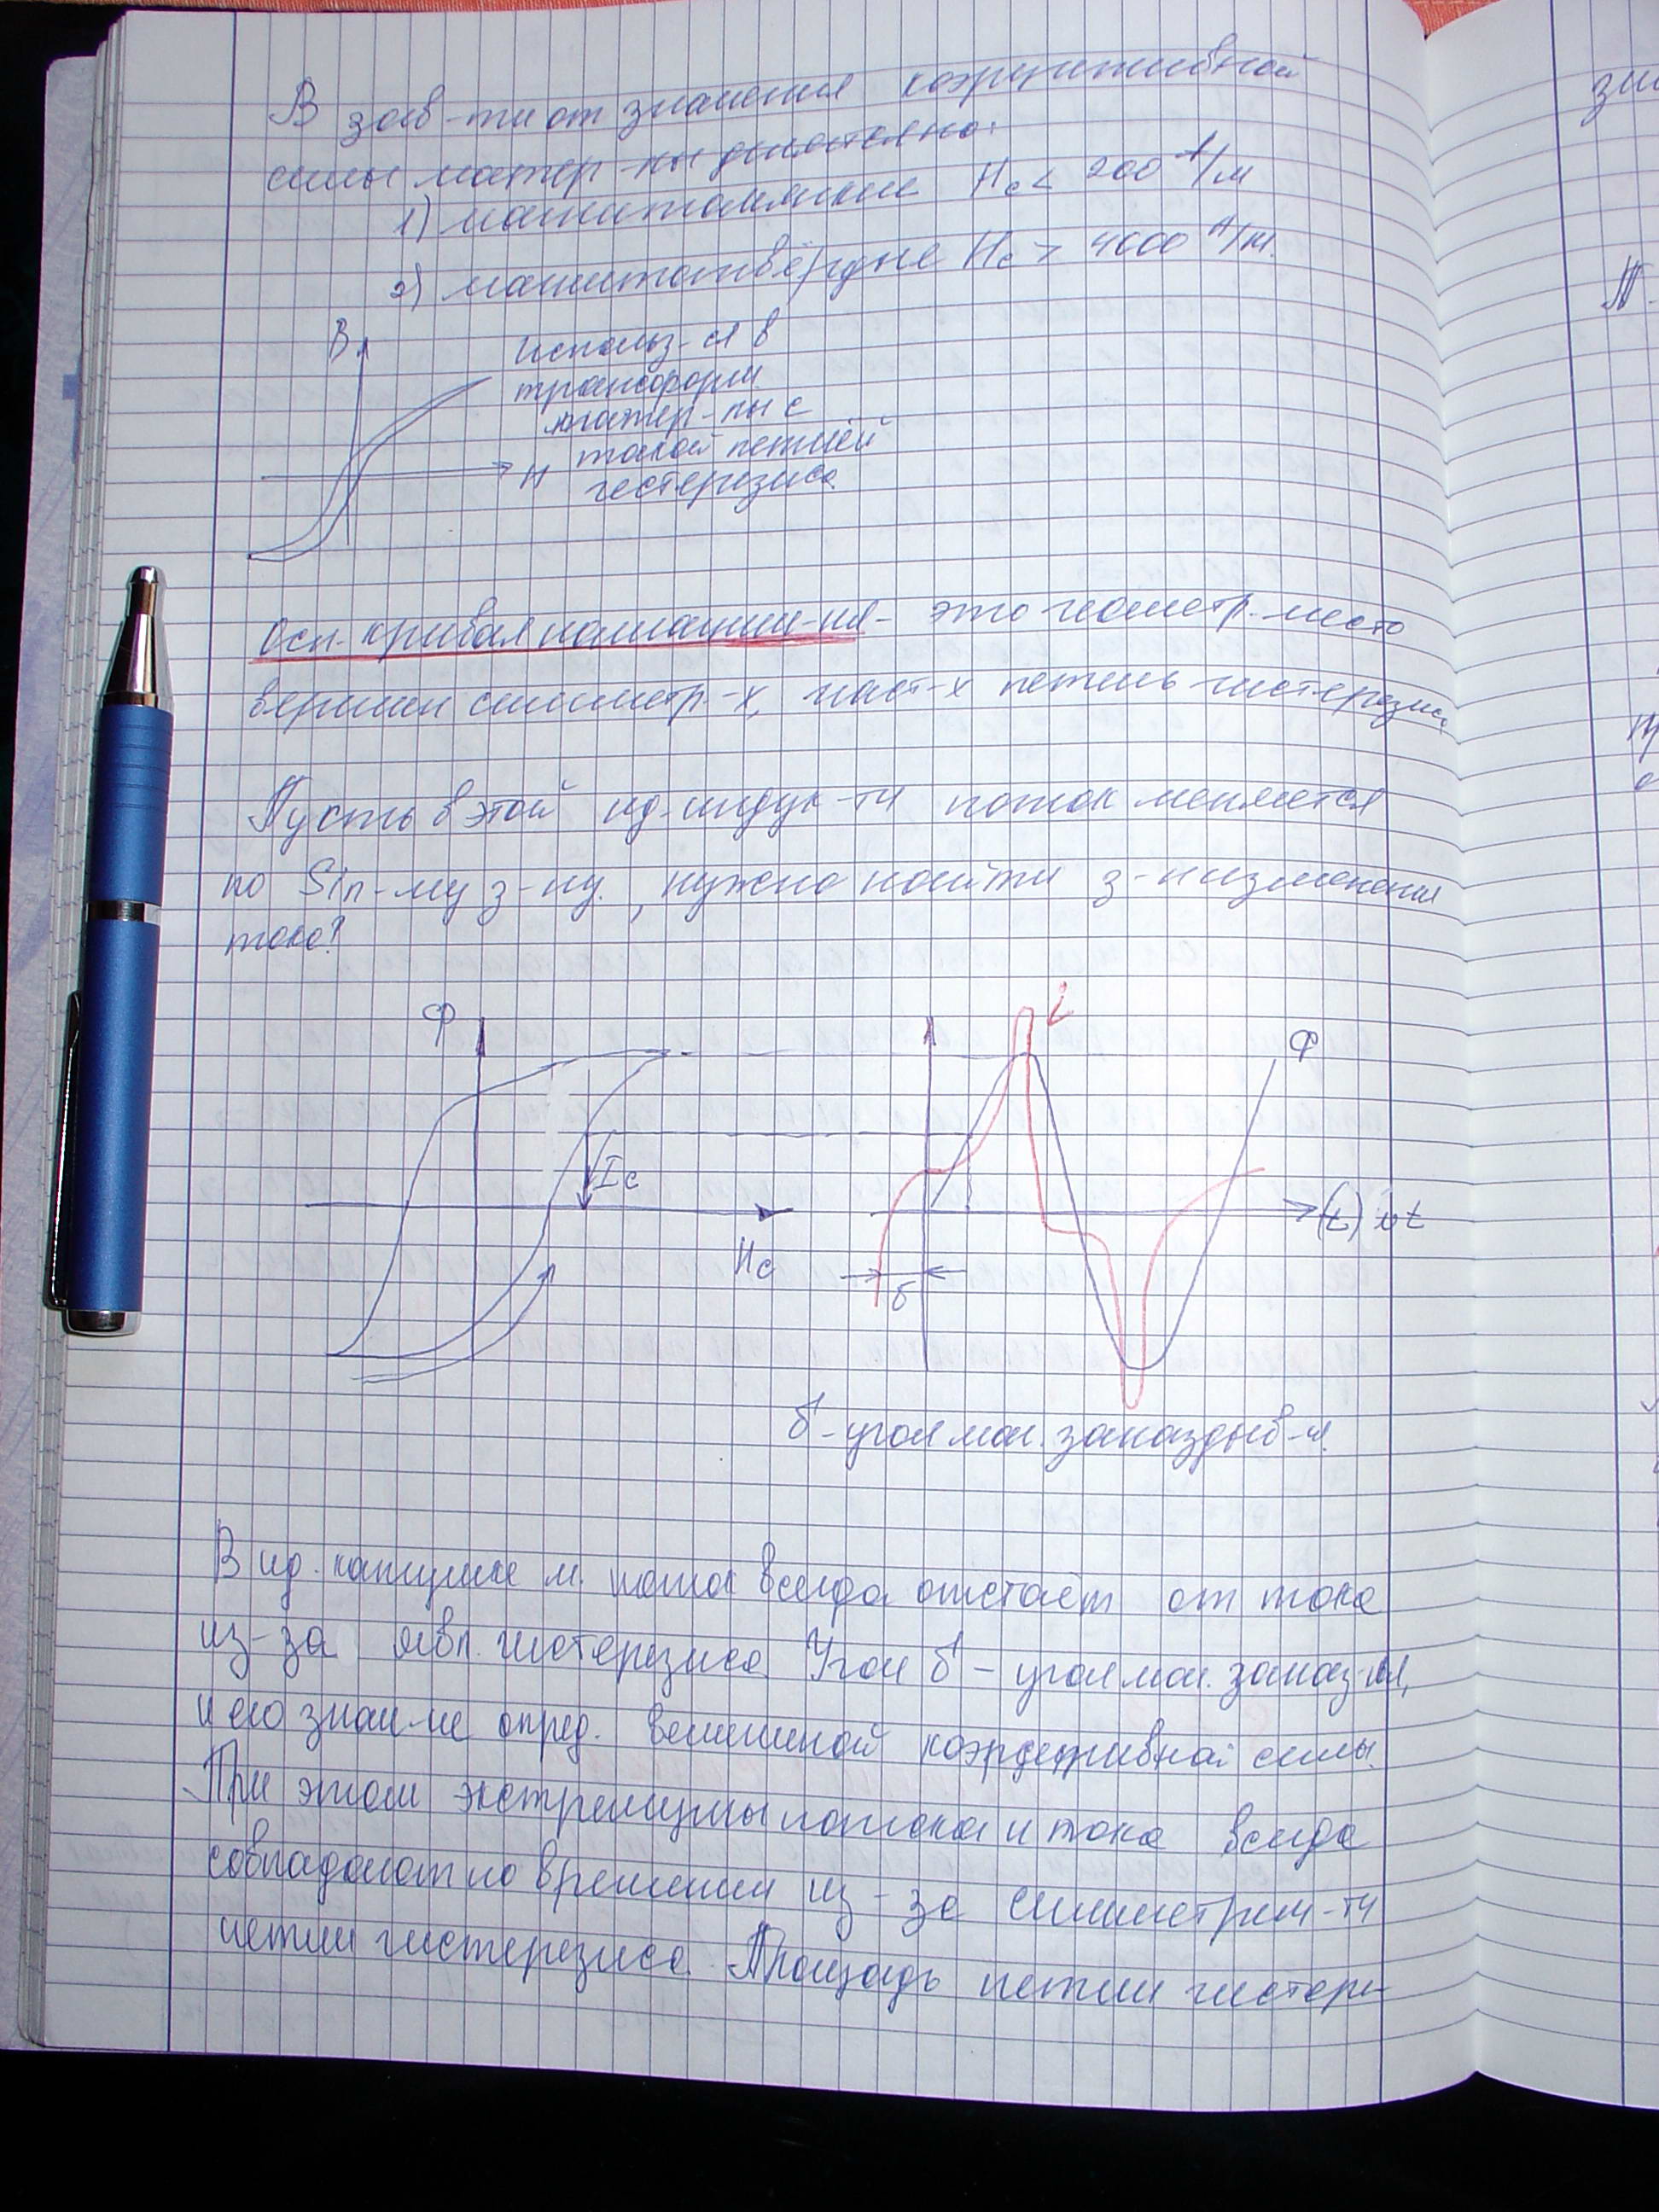 В зав-ти от значения коэрцитивной
силы матер-лы делятся на:
1) магнитомягкие Hc < 200 А/м
2) магнитотвёрдые Hc > 4000 А/м.
B
Использ-ся в
трансформ.
матер-лы с
такой петлёй
H
гестерезиса
Осн. кривая намагнич-ия - это геометр. место
вершин симметр-х, част-х петель гистерезиса
Пусть в этой ид. индук-ти поток меняется
по Sin-му з-ну, нужно найти з-н изменения
тока?
Ф
i
Ф
Ic
(t) wt
Hc
δ
δ - угол маг. запаздыв-я.
В ид. катушке м. поток всегда отстаёт от тока
из-за явл. гистерезиса Угол δ - угол маг. запаз-ия,
и его знач-ие опред. величиной коэрцетивной силы.
При этом экстремумы потока и тока всегда
совпадают по времени из-за симметрич-ти
петли гистерезиса. Площадь петли гистере-
зн
П-